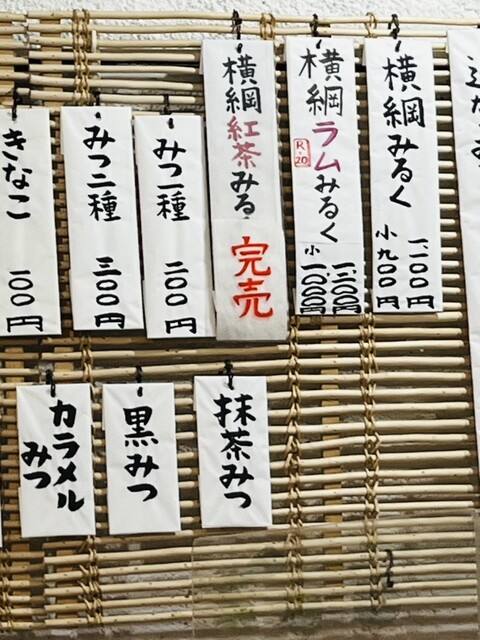 横綱みるく
一、一〇〇円
小 九〇〇円
横綱ラムみるく
R-20
一、三〇〇円
小 一、〇〇〇円
横綱紅茶みる
完売
みつ一種 二〇〇円
みつ二種 三〇〇円
きなこ 一〇〇円
抹茶みつ
黒みつ
カラメル
みつ